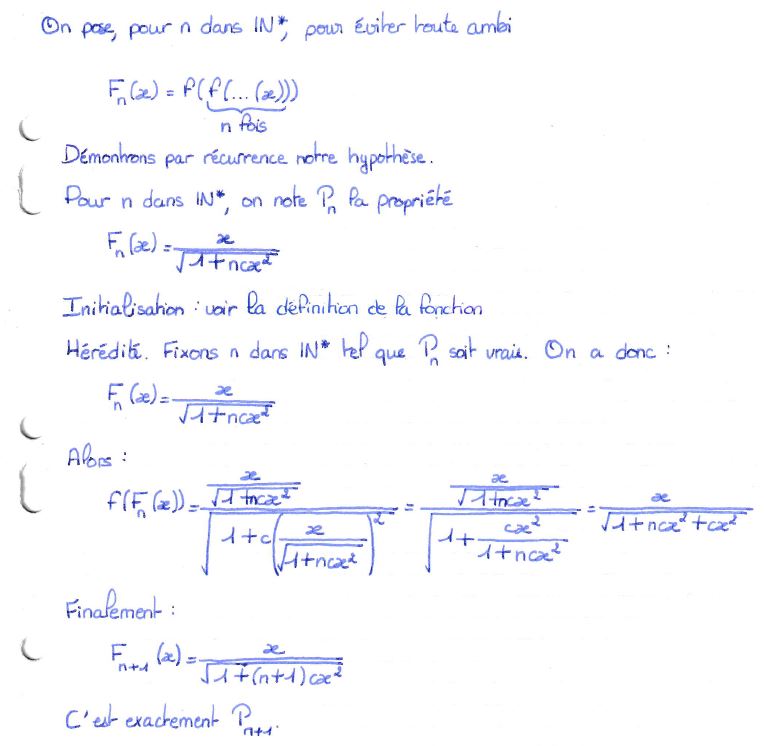 On pose, pour n dans IN*, pour éviter toute ambi
F_n(x) = f(f(...(x)))
n fois
Démontrons par récurrence notre hypothèse.
Pour n dans IN*, on note P_n la propriété
F_n(x) = x / √(1+ncx²)
Initialisation : voir la définition de la fonction
Hérédité. Fixons n dans IN* tel que P_n soit vraie. On a donc :
F_n(x) = x / √(1+ncx²)
Alors :
f(F_n(x)) = (x / √(1+ncx²)) / √(1+c(x / √(1+ncx²))²) = (x / √(1+ncx²)) / √(1+ cx² / (1+ncx²)) = x / √(1+ncx²+cx²)
Finalement :
F_{n+1}(x) = x / √(1+(n+1)cx²)
C'est exactement P_{n+1}.